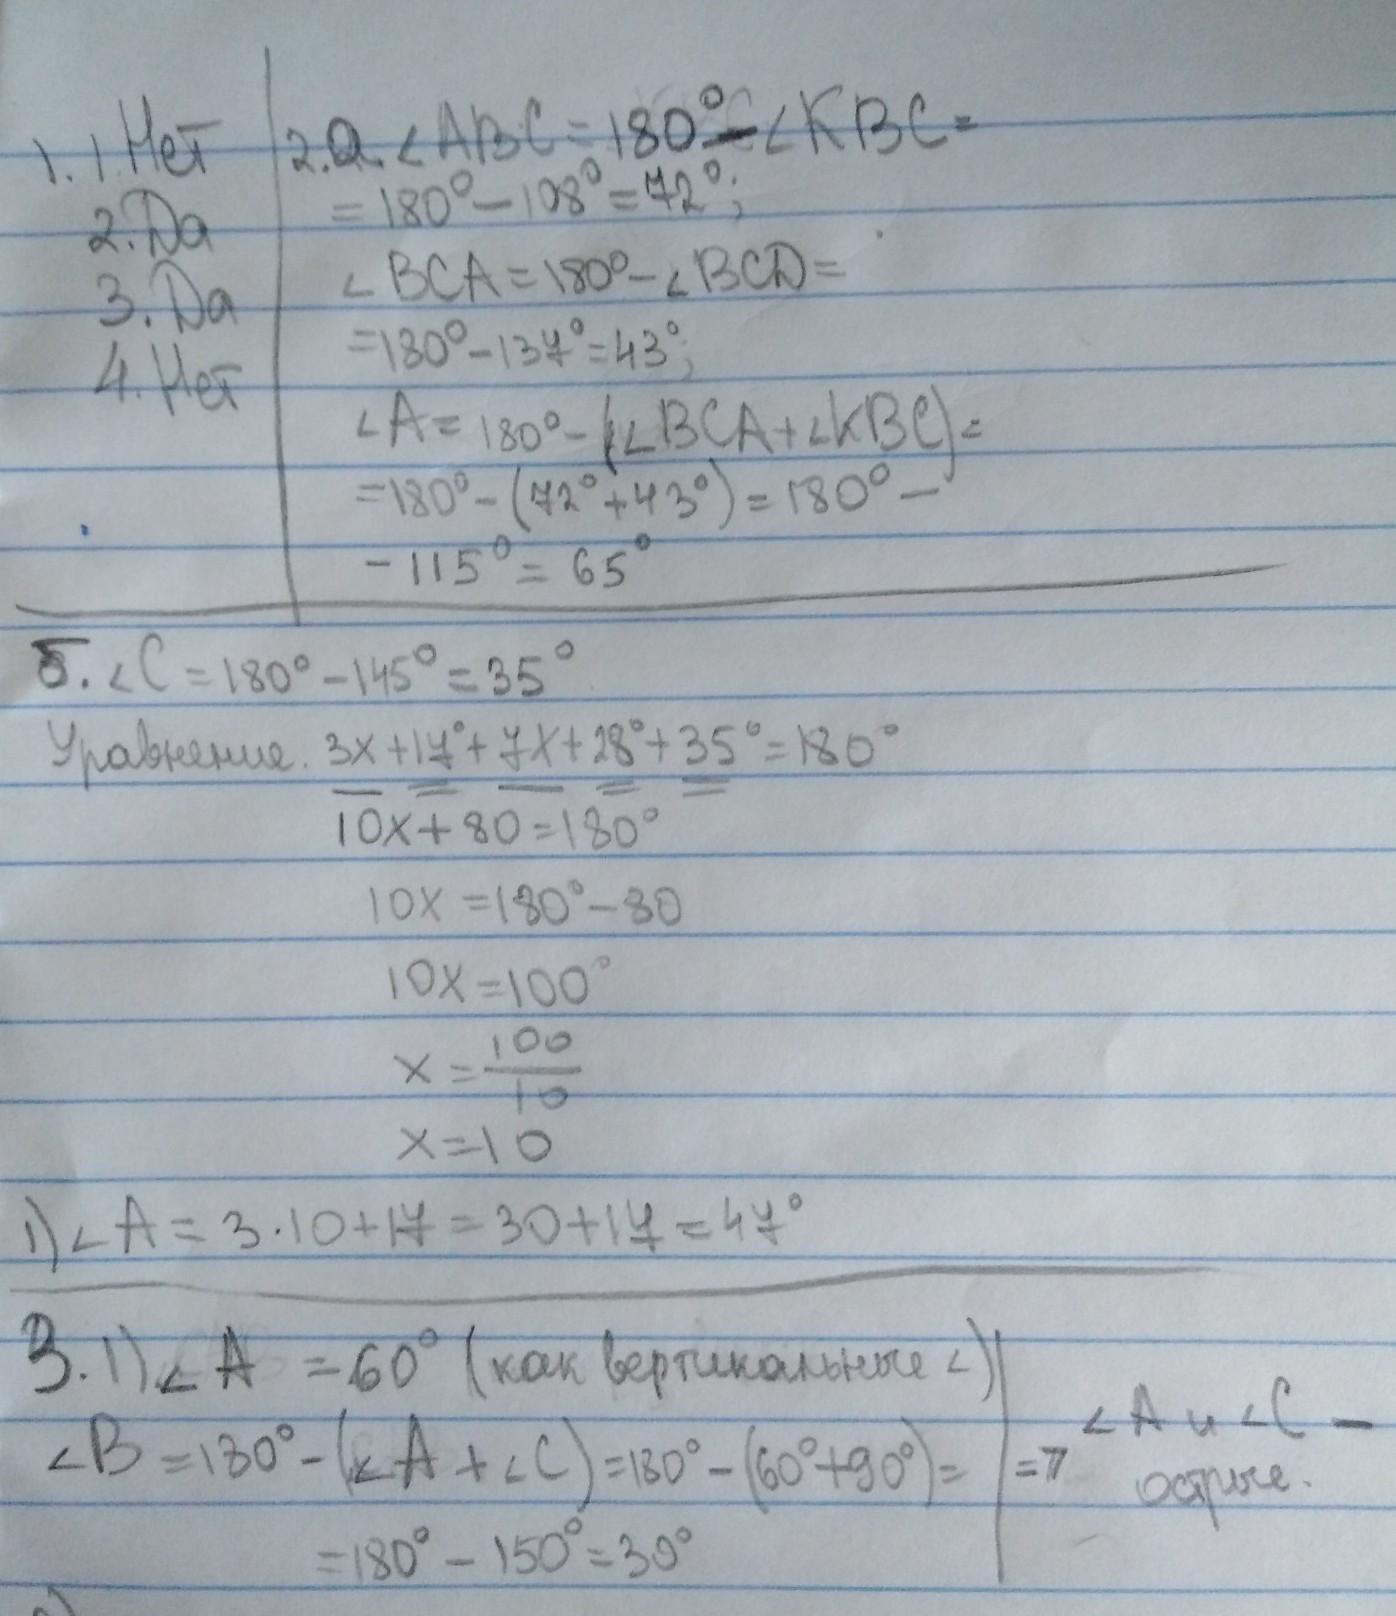 1. 1. Нет
2. Да
3. Да
4. Нет
2. а. ∠ABC = 180° - ∠KBC =
= 180° - 108° = 72°;
∠BCA = 180° - ∠BCD =
= 180° - 137° = 43°;
∠A = 180° - (∠BCA + ∠KBC) =
= 180° - (72° + 43°) = 180° -
- 115° = 65°
б. ∠C = 180° - 145° = 35°
Уравнение. 3x + 17° + 7x + 28° + 35° = 180°
10x + 80 = 180°
10x = 180° - 80
10x = 100°
x = 100/10
x = 10
1) ∠A = 3·10 + 17 = 30 + 17 = 47°
3. 1) ∠A = 60° (как вертикальные ∠)
∠B = 180° - (∠A + ∠C) = 180° - (60° + 90°) =
= 180° - 150° = 30°
=> ∠A и ∠C -
острые.